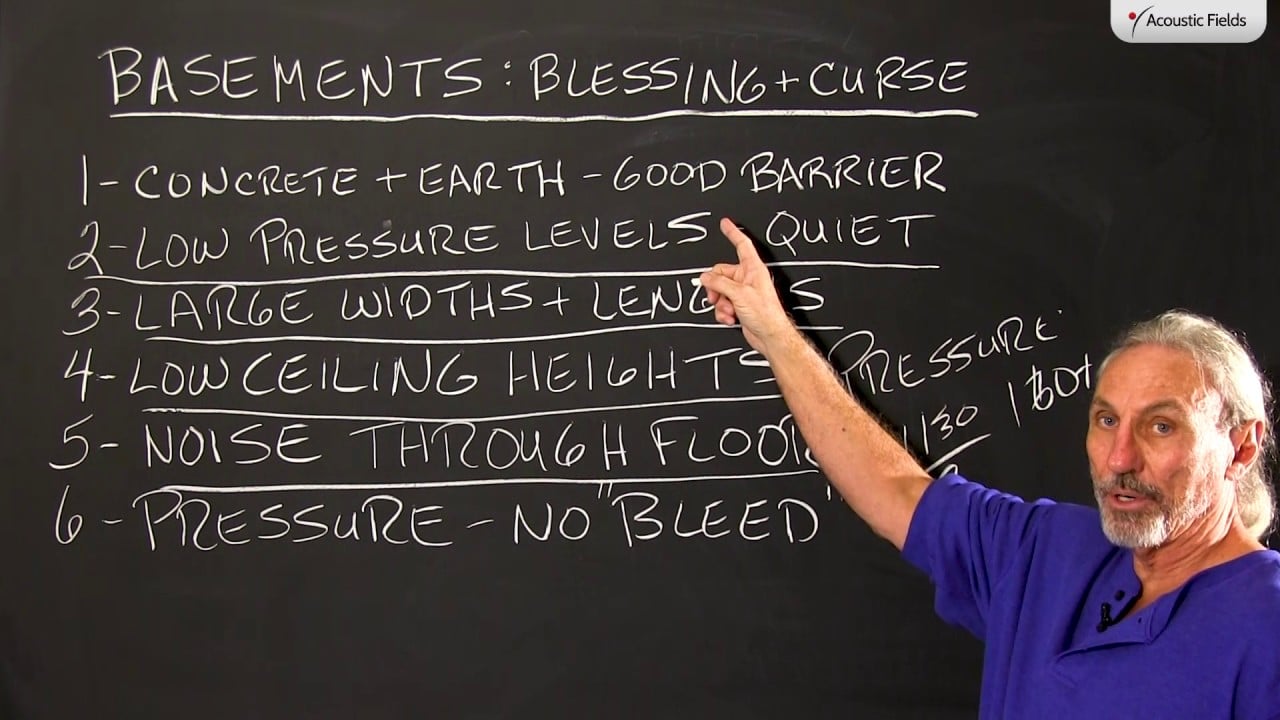 Acoustic Fields
BASEMENTS: BLESSING + CURSE
1- CONCRETE + EARTH - GOOD BARRIER
2- LOW PRESSURE LEVELS - QUIET
3- LARGE WIDTHS + LENGTHS
4- LOW CEILING HEIGHTS PRESSURE
5- NOISE THROUGH FLOOR
1130
6- PRESSURE - NO "BLEED"